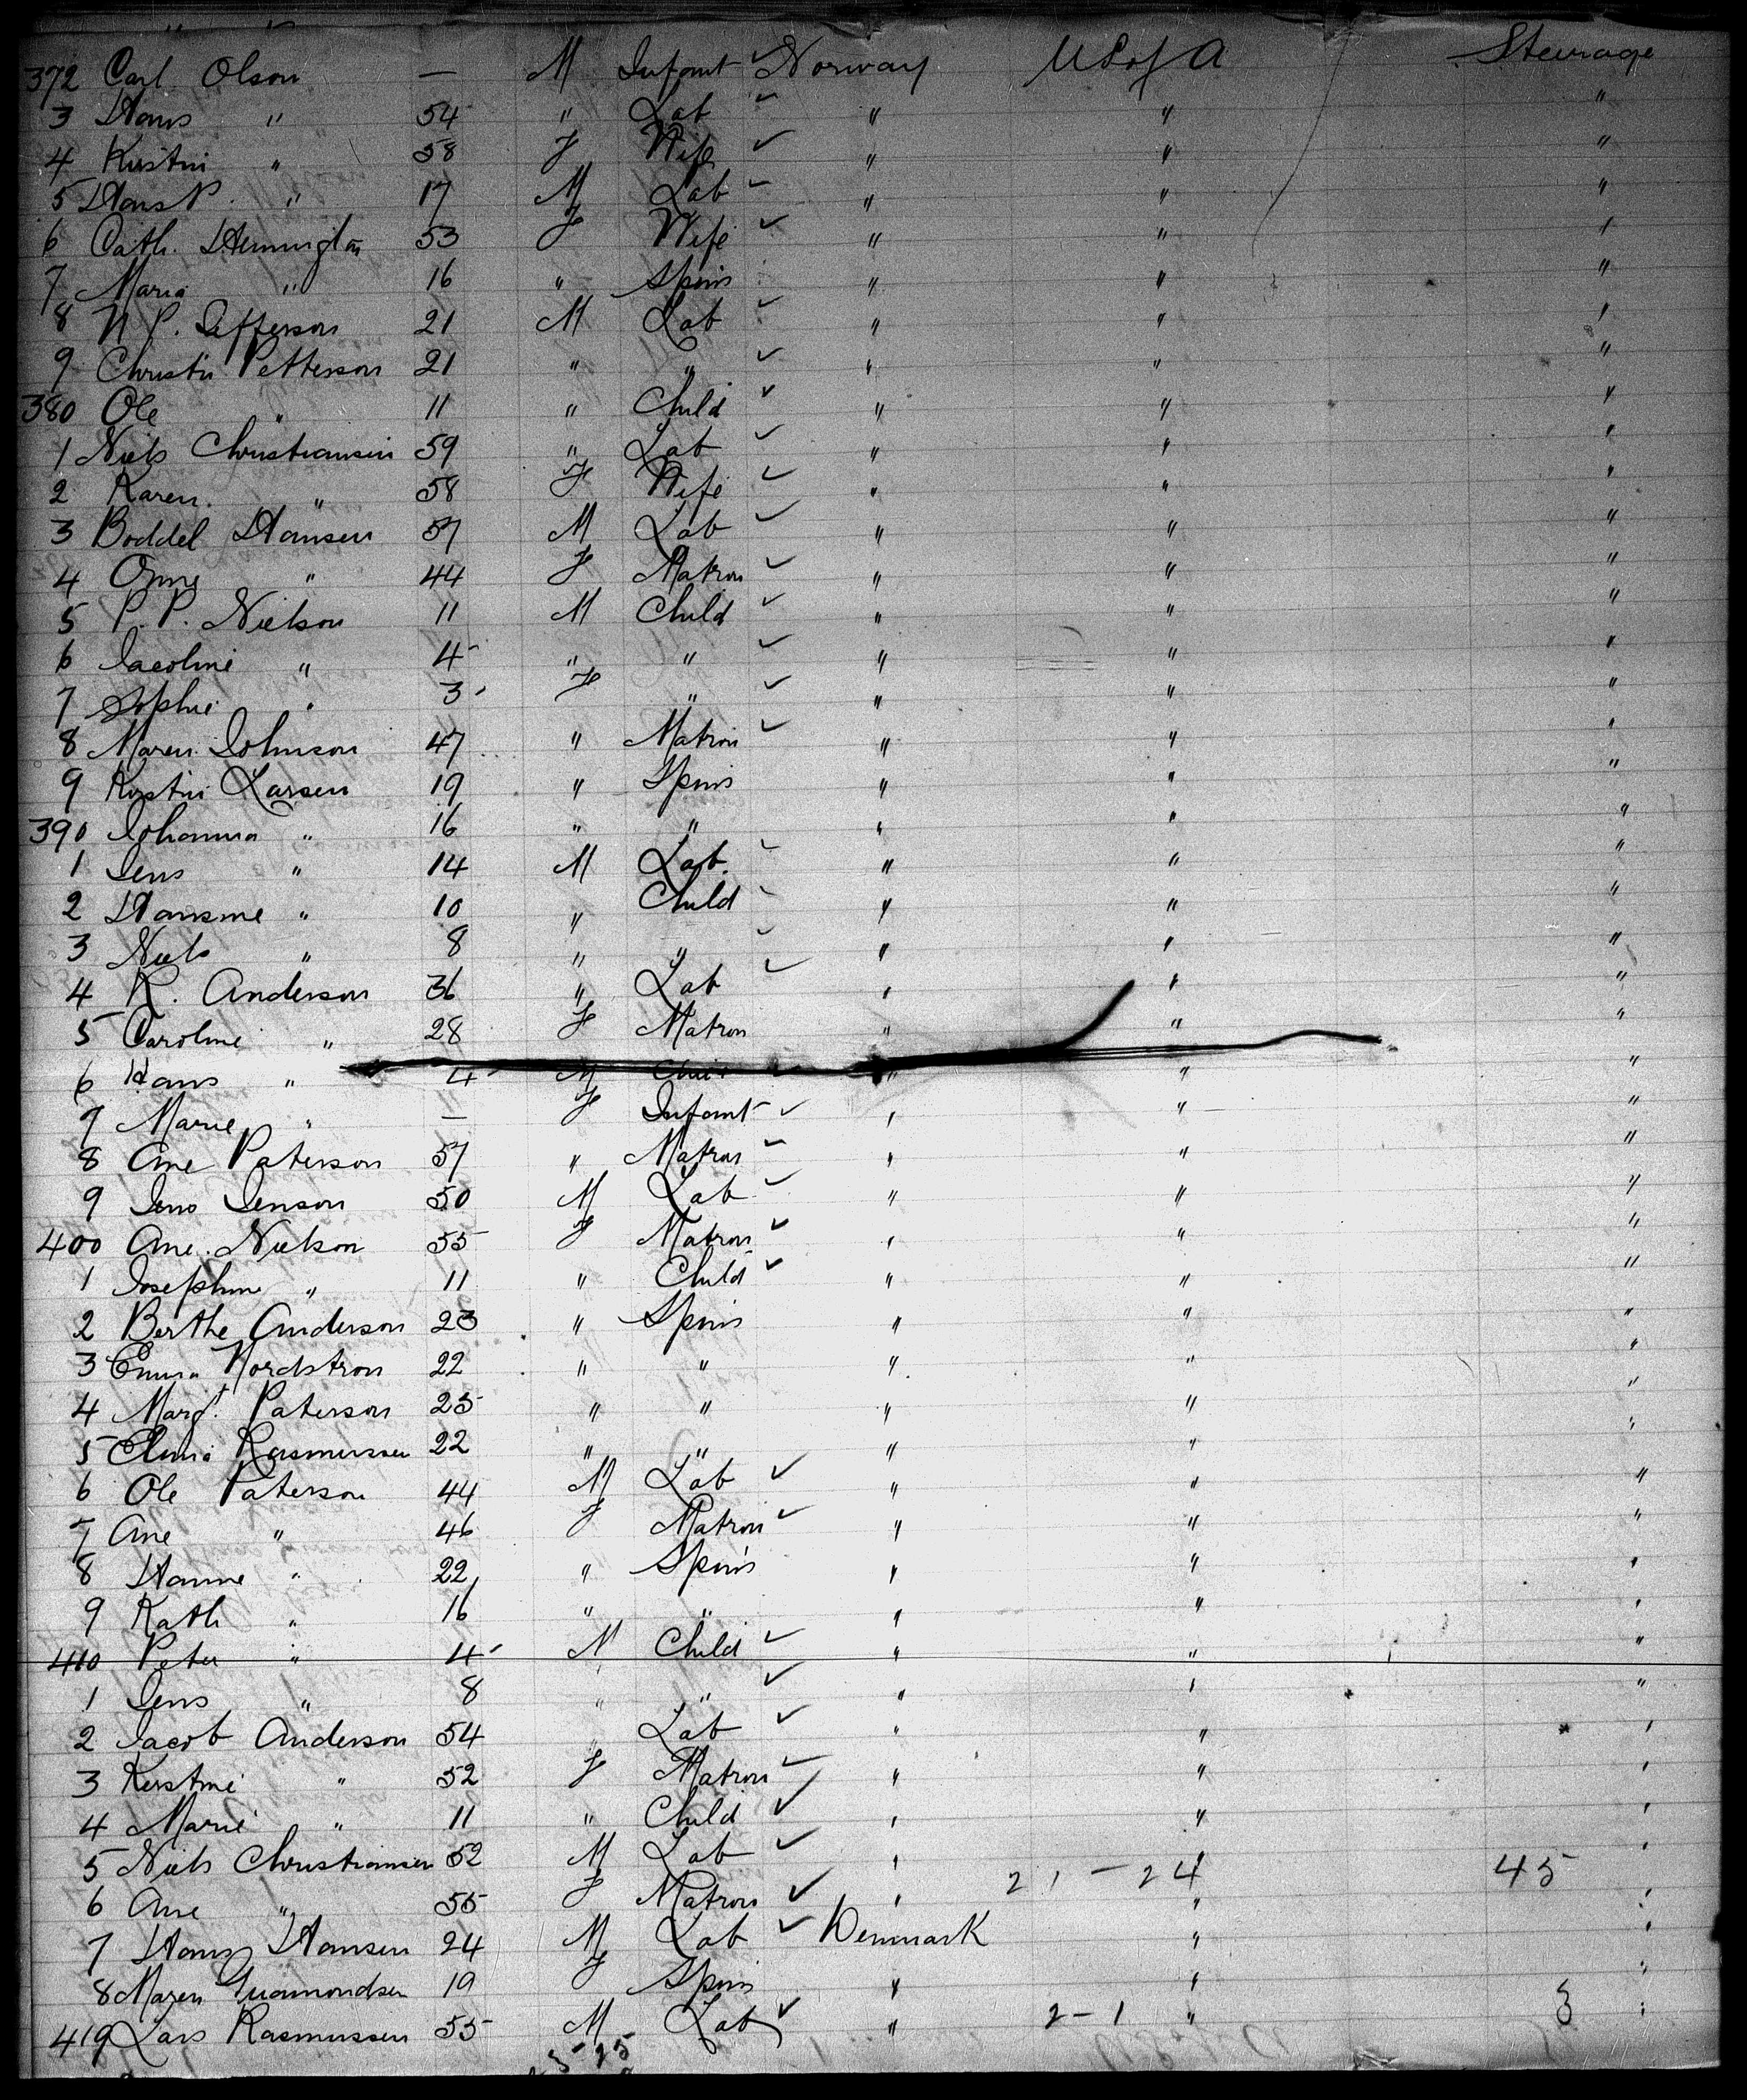 372 Carl Olson — M Infant ✓ Norway U S of A Steerage
3 Hans " 54 " Lab ✓ " " "
4 Kirstin " 58 F Wife ✓ " " "
5 Hans P. " 17 M Lab ✓ " " "
6 Cath. Hennington 53 F Wife ✓ " " "
7 Maria " 16 " Spins " " "
8 N P. Jefferson 21 M Lab ✓ " " "
9 Christn Petterson 21 " " ✓ " " "
380 Ole " 11 " Child ✓ " " "
1 Niels Christiansen 59 " Lab ✓ " " "
2 Karen " 58 F Wife ✓ " " "
3 Boddel Hansen 57 M Lab ✓ " " "
4 " 44 F Matron ✓ " " "
5 P. P. Nielson 11 M Child ✓ " " "
6 Jacoline " 4 " " ✓ " " "
7 Sophie " 3 F " ✓ " " "
8 Maren Johnson 47 " Matron ✓ " " "
9 Kirstin Larsen 19 " Spins " " "
390 Johanna " 16 " " " " "
1 Jens " 14 M Lab. ✓ " " "
2 Hansine " 10 " Child ✓ " " "
3 Niels " 8 " " ✓ " " "
4 K. Anderson 36 " Lab ✓ " " "
5 Caroline " 28 F Matron " " "
6 Hans " 4 M Child ✓ " " "
7 Marie " — F Infant ✓ " " "
8 Ane Paterson 57 " Matron ✓ " " "
9 Jens Jenson 50 M Lab ✓ " " "
400 Ane. Nielson 55 F Matron ✓ " " "
1 Josephine " 11 " Child ✓ " " "
2 Berthe Anderson 23 " Spins " " "
3 Emma Nordstron 22 " " " " "
4 Margt. Paterson 25 " " " " "
5 Rasmussen 22 " " " " "
6 Ole Paterson 44 M Lab ✓ " " "
7 Ane " 46 F Matron ✓ " " "
8 Hanne " 22 " Spins " " "
9 Kath " 16 " " " " "
410 Peter " 4 M Child ✓ " " "
1 Jens " 8 " " ✓ " " "
2 Jacob Anderson 54 " Lab ✓ " " "
3 Kerstine " 52 F Matron ✓ " " "
4 Marie " 11 " Child ✓ " " "
5 Niels Christiansen 52 M Lab ✓ " 21 - 24 " 45 "
6 Ane " 55 F Matron ✓ " " "
7 Hans Hansen 24 M Lab ✓ Denmark " "
8 Maren 19 F Spins " " "
419 Lars Rasmussen 55 M Lab ✓ " 2 - 1 " 3 "